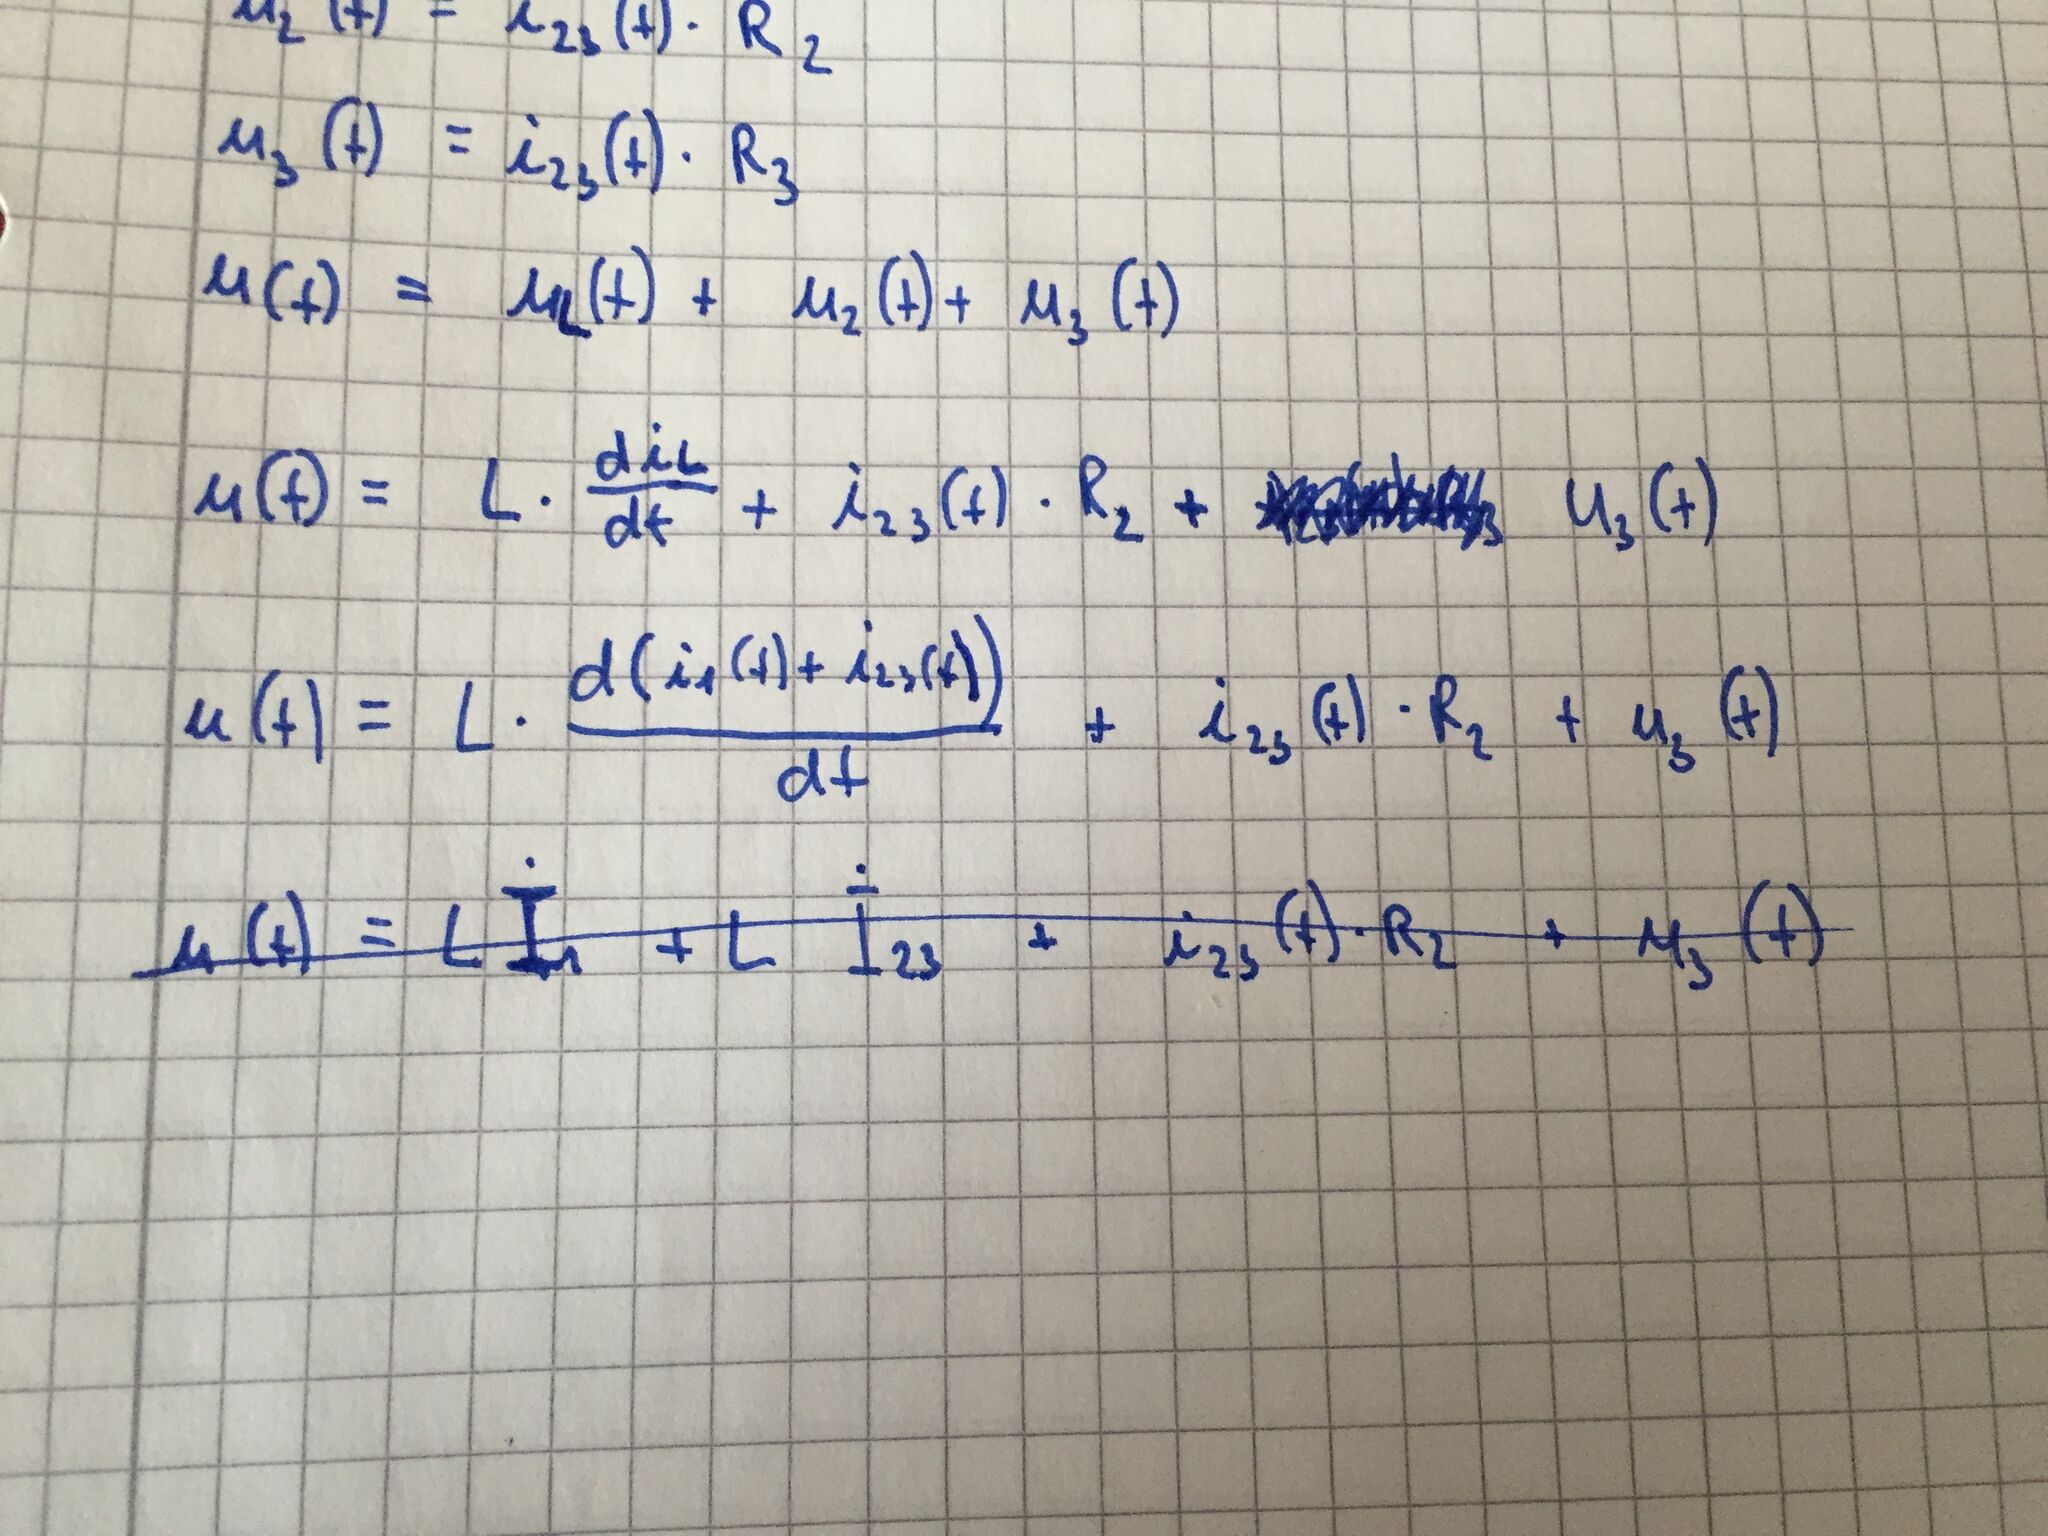 u₂(t) = i₂₃(t) · R₂
u₃(t) = i₂₃(t) · R₃
u(t) = u_L(t) + u₂(t) + u₃(t)
u(t) = L · di_L/dt + i₂₃(t) · R₂ + u₃(t)
u(t) = L · d(i₁(t) + i₂₃(t))/dt + i₂₃(t) · R₂ + u₃(t)
u(t) = L İ₁ + L İ₂₃ + i₂₃(t) · R₂ + u₃(t)